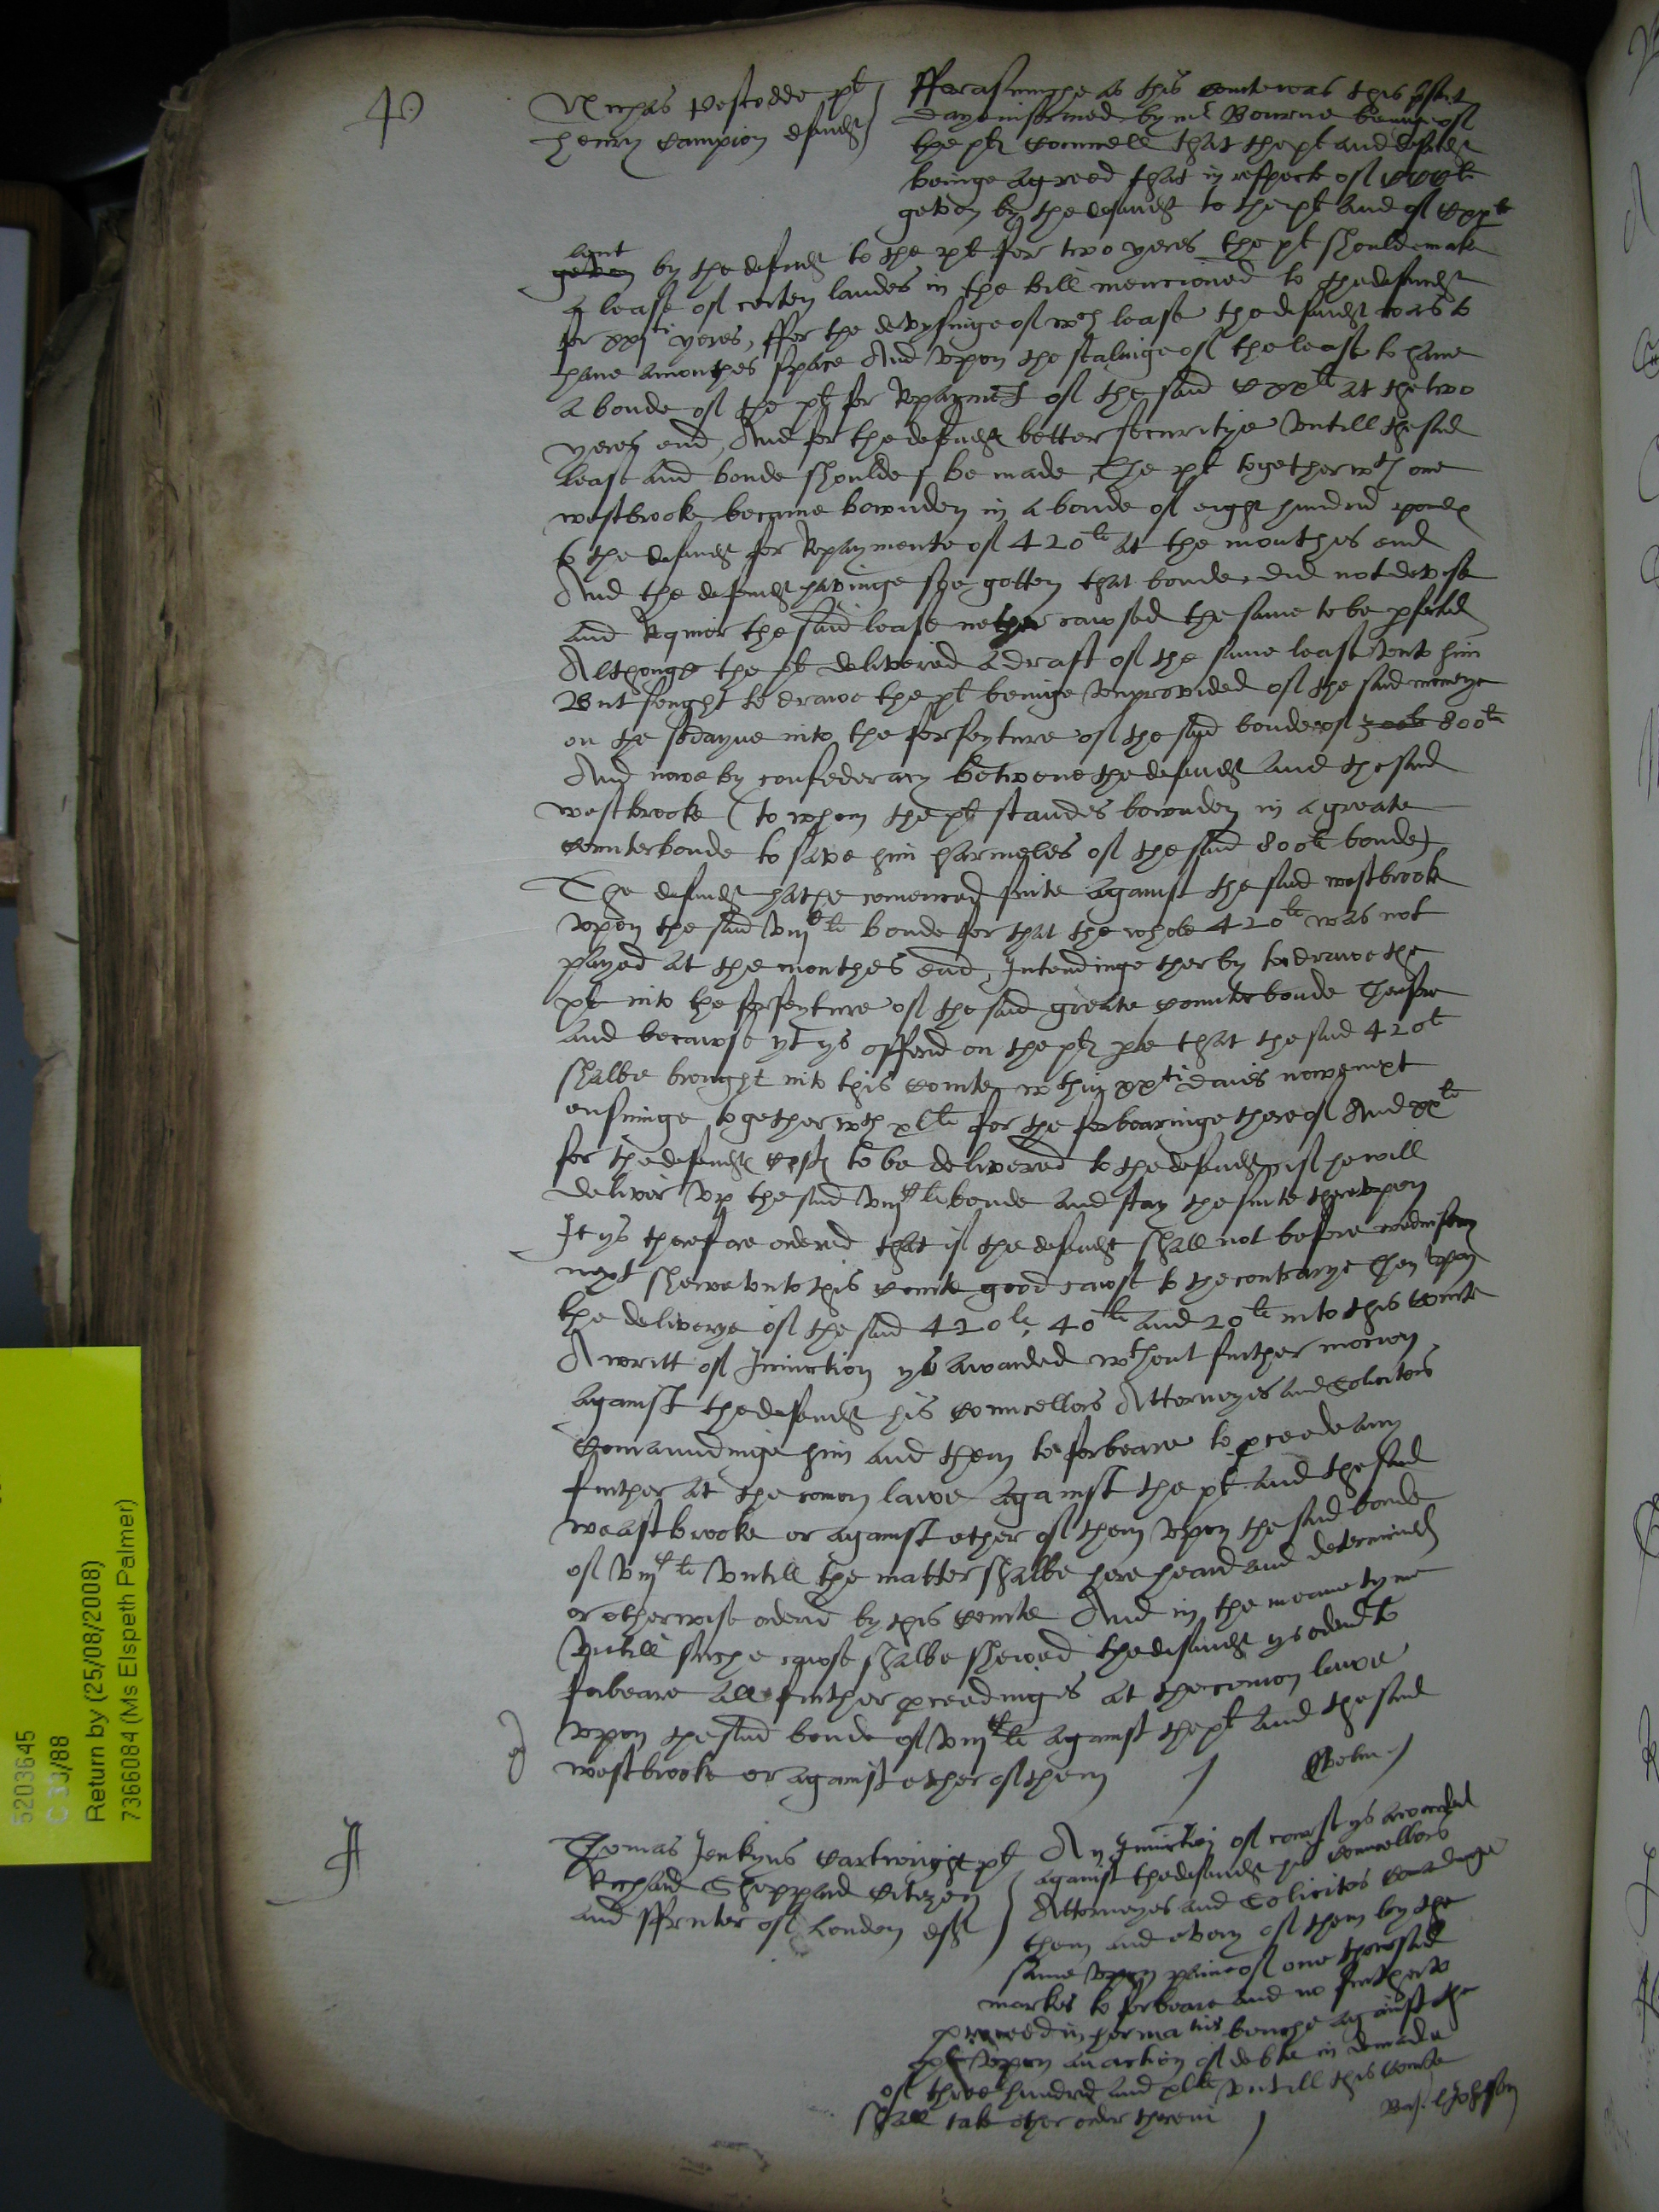 40
Nichas Postodde pl
henry Campion defendt
fforasmuche as this courte was this psent
daye informed by mr Bourne beinge of
the pltes councell that the pl and defendt
beinge agreed that in respecte of
geven by the defendt to the pl and of CCxxli
lent
geven by the defendt to the pl for two yeres the pl should make
a lease of certen landes in the bill mencioned to the defendt
for xxjti yeres, ffor the devysinge of wch lease the defendt was to
have a monthes space And upon the sealinge of the lease to have
a bonde of the pl for Repaymet of the said CCxxli at the two
yeres end, And for the defendtes better securitye untill the said
lease and bonde shoulde be made, The pl together wth one
westbrooke became bownden in a bonde of eight hundred powndes
to the defendt for Repaymente of 420li at the monthes end
And the defendt havinge soe gotten that bonde did not devise
and Requier the said lease nether cawsed the same to be pfected
Althoughe the pl delivered a draft of the same lease unto him
But sought to drawe the pl beinge unprovided of the said moneye
on the sodayne into the forfeyture of the said bonde of 800li
And nowe by confederacy betwene the defendt and the said
westbrooke (to whom the pl standes bownden in a greate
counterbonde to save him harmeles of the said 800li bonde)
The defendt hathe comenced suite against the said westbrooke
upon the said viijCli bonde for that the whole 420li was not
payed at the monthes end, Intendinge therby to drawe the
pl into the forfeyture of the said greate counterbonde Therfore
and becawse yt ys offred on the pltes pte that the said 420li
shalbe brought into this courte wthin xxti daies nowe next
ensuinge together wth xlli for the forbearinge thereof And xxli
for the defendtes costes to be delivered to the defendt if he will
deliver up the said viijCli bonde and stay the suite thereupon
It ys therefore ordered that if the defendt shall not before wednesday
next shewe unto this courte good cawse to the contrarye Then upon
the deliverye of the said 420li, 40li and 20li into this courte
A writt of Iniunction ys awarded wthout further mocion
against the defendt his councellors Attorneyes and Solicitors
Comaundinge him and them to forbeare to pceede any
further at the comon lawe against the pl and the said
weastbrooke or against ether of them upon the said bonde
of viijCli untill the matter shalbe here heard and determined
or otherwise ordered by this courte And in the meane tyme
Untill suche cawse shalbe shewed the defendt ys ordered to
forbeare all further pceedinges at the comon lawe
upon the said bonde of viijCli against the pl and the said
westbrooke or against ether of them
Thomas Jenkyns Cartwright pl
Richard Sheppard Citizen
and ffruter of London deft
An Iniunction of course ys awarded
against the defendt his councellors
Attorneyes and Solicitors
them and every of them by the
same upon paine of one thowsand
markes to forbeare and no further to
proceed in her maties benche against the
pl upon an action of debte in demaunde
of three hundred and xlli untill this courte
shall take other order therein
5203645
C 33/88
Return by (25/08/2008)
7366084 (Ms Elspeth Palmer)